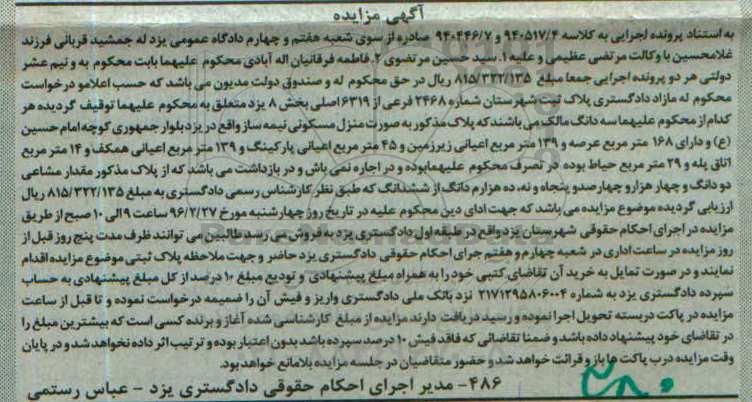 آگهی مزایده
به استناد پرونده اجرایی به کلاسه ۹۴۰۵۱۷/۴ و ۹۴۰۴۴۶/۷ صادره از سوی شعبه هفتم و چهارم دادگاه عمومی یزد له جمشید قربانی فرزند
غلامحسین با وکالت مرتضی عظیمی و علیه ۱. سید حسین مرتضوی ۲. فاطمه فرقانیان اله آبادی محکوم علیهما بابت محکوم به و نیم عشر
دولتی هر دو پرونده اجرایی جمعا مبلغ ۸۱۵/۳۲۲/۱۳۵ ریال در حق محکوم له و صندوق دولت مدیون می باشد که حسب اعلام و درخواست
محکوم له مازاد دادگستری پلاک ثبت شهرستان شماره ۲۴۶۸ فرعی از ۶۳۱۹ اصلی بخش ۸ یزد متعلق به محکوم علیهما توقیف گردیده هر
کدام از محکوم علیهما سه دانگ مالک می باشند که پلاک مذکور به صورت منزل مسکونی نیمه ساز واقع در یزد بلوار جمهوری کوچه امام حسین
(ع) و دارای ۱۶۸ متر مربع عرصه و ۱۳۹ متر مربع اعیانی زیرزمین و ۴۵ متر مربع اعیانی پارکینگ و ۱۳۹ متر مربع اعیانی همکف و ۱۴ متر مربع
اتاق پله و ۲۹ متر مربع حیاط بوده در تصرف محکوم علیهما بوده و در اجاره نمی باش و در بازداشت می باشد که از پلاک مذکور مقدار مشاعی
دو دانگ و چهار هزار و چهارصد و پنجاه و نه، ده هزارم دانگ از ششدانگ که طبق نظر کارشناس رسمی دادگستری به مبلغ ۸۱۵/۳۲۲/۱۳۵ ریال
ارزیابی گردیده موضوع مزایده می باشد که جهت ادای دین محکوم علیه در تاریخ روز چهارشنبه مورخ ۹۶/۲/۲۷ ساعت ۹ الی ۱۰ صبح از طریق
مزایده در اجرای احکام حقوقی شهرستان یزد واقع در طبقه اول دادگستری یزد به فروش می رسد طالبین می توانند ظرف مدت پنج روز قبل از
روز مزایده در ساعت اداری در شعبه چهارم و هفتم جرای احکام حقوقی دادگستری یزد حاضر و جهت ملاحظه پلاک ثبتی موضوع مزایده اقدام
نمایند و در صورت تمایل به خرید آن تقاضای کتبی خود را به همراه مبلغ پیشنهادی و تودیع مبلغ ۱۰ درصد از کل مبلغ پیشنهادی به حساب
سپرده دادگستری یزد به شماره ۲۱۷۱۲۹۵۸۰۶۰۰۴ نزد بانک ملی دادگستری واریز و فیش آن را ضمیمه درخواست نموده و تا قبل از ساعت
مزایده در پاکت دربسته تحویل اجرا نموده و رسید دریافت دارند مزایده از مبلغ کارشناسی شده آغاز و برنده کسی است که بیشترین مبلغ را
در تقاضای خود پیشنهاد داده باشد و ضمنا تقاضائی که فاقد فیش ۱۰ درصد سپرده باشد بدون اعتبار بوده و ترتیب اثر داده نخواهد شد و در پایان
وقت مزایده درب پاکت ها باز و قرائت خواهد شد و حضور متقاضیان در جلسه مزایده بلامانع خواهد بود.
۴۸۶- مدیر اجرای احکام حقوقی دادگستری یزد - عباس رستمی